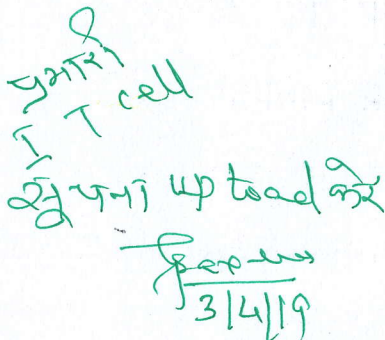 प्रभारी
I T cell
सूचना upload करें
3/4/19